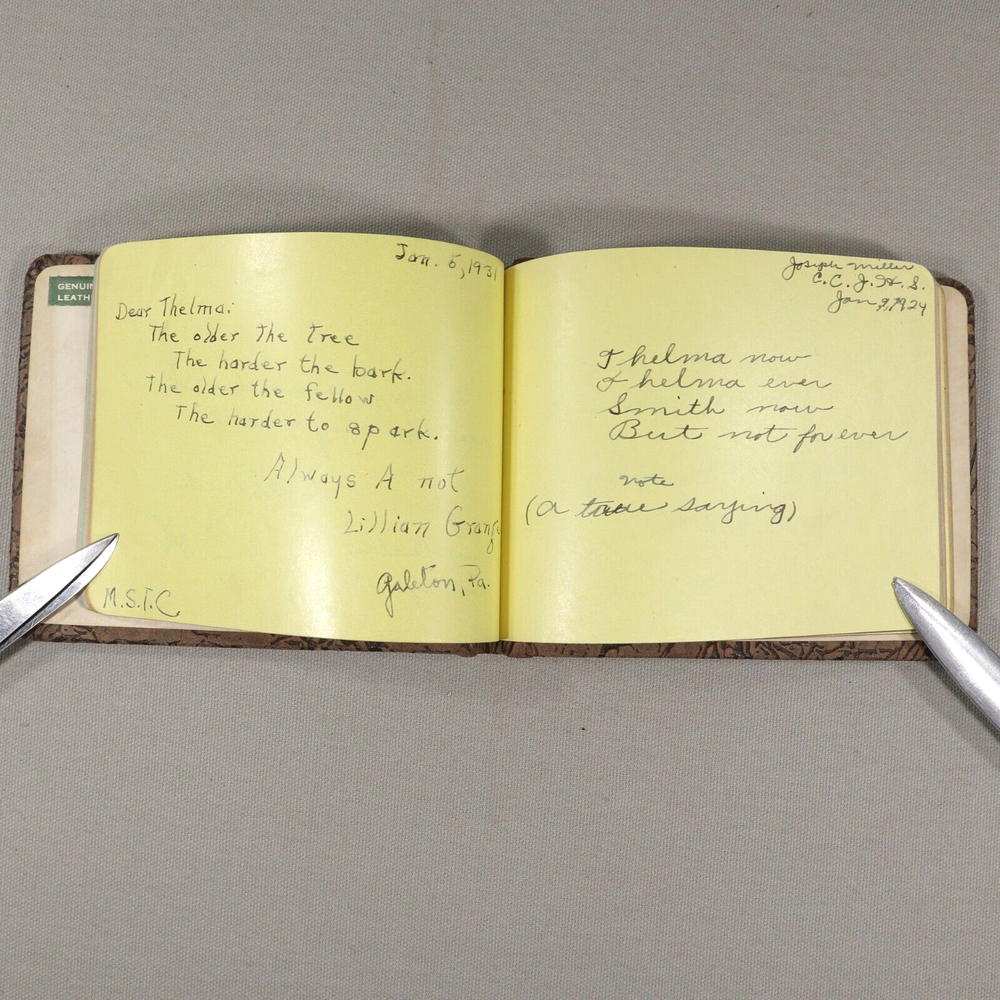 GENUIN
LEATH
Jan. 5, 1931
Dear Thelma:
The older the Tree
The harder the bark.
The older the fellow
The harder to spark.
Always A not
Lillian Grang
Galeton, Pa.
M.S.T.C.
Joseph Miller
C. C. J. H. S.
Jan 9, 1924
Thelma now
Thelma ever
Smith now
But not forever
note
(a true saying)